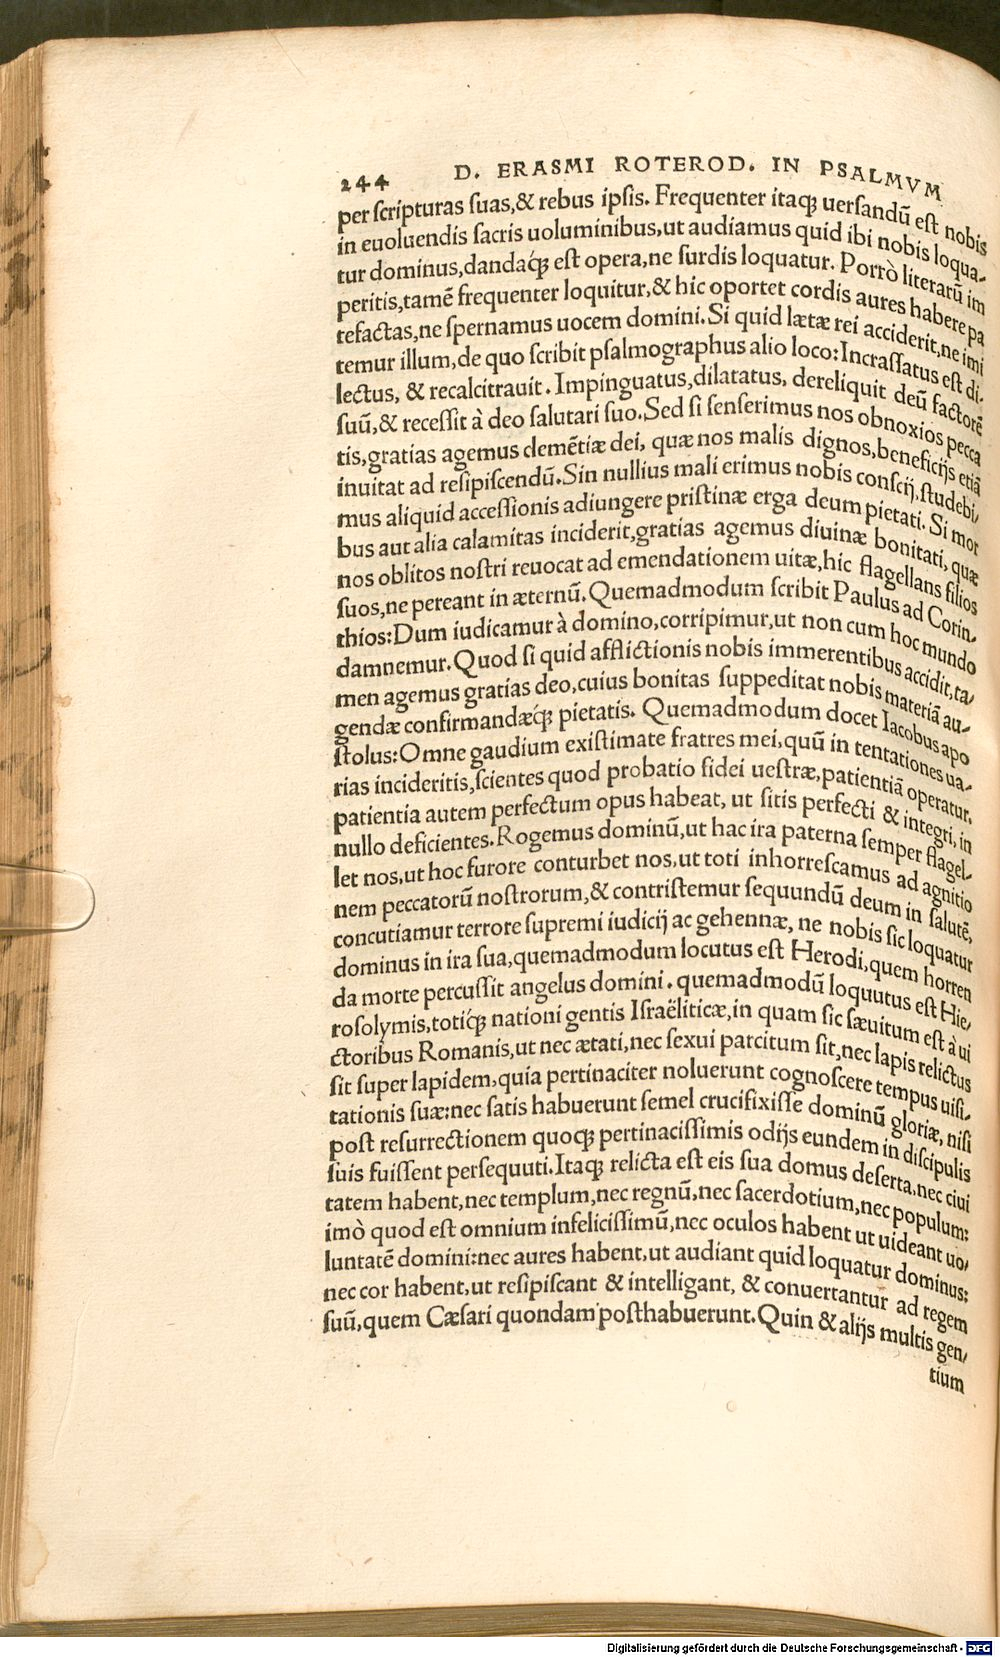 244 D. ERASMI ROTEROD. IN PSALMVM
per ſcripturas ſuas,& rebus ipſis. Frequenter itaqꝫ uerſandū eſt nobis
in euoluendis ſacris uoluminibus,ut audiamus quid ibi nobis loqua-
tur dominus,dandaq́ꝫ eſt opera,ne ſurdis loquatur. Porrò literarū im
peritis,tamē frequenter loquitur,& hic oportet cordis aures habere pa
tefactas,ne ſpernamus uocem domini.Si quid lætæ rei acciderit,ne imi
temur illum,de quo ſcribit pſalmographus alio loco:Incraſſatus eſt di-
lectus, & recalcitrauit. Impinguatus,dilatatus, dereliquit deū factorē
ſuū,& receſſit à deo ſalutari ſuo.Sed ſi ſenſerimus nos obnoxios pecca
tis,gratias agemus clemētiæ dei, quæ nos malis dignos,beneficijs etiā
inuitat ad reſipiſcendū.Sin nullius mali erimus nobis conſcij,ſtudebi/
mus aliquid acceſſionis adiungere priſtinæ erga deum pietati. Si mor
bus aut alia calamitas inciderit,gratias agemus diuinæ bonitati, quæ
nos oblitos noſtri reuocat ad emendationem uitæ,hic flagellans filios
ſuos,ne pereant in æternū.Quemadmodum ſcribit Paulus ad Corin/
thios:Dum iudicamur à domino,corripimur,ut non cum hoc mundo
damnemur.Quod ſi quid afflictionis nobis immerentibus accidit,ta/
men agemus gratias deo,cuius bonitas ſuppeditat nobis materiā au/
gendæ confirmandæq́ꝫ pietatis. Quemadmodum docet Iacobus apo
ſtolus:Omne gaudium exiſtimate fratres mei,quū in tentationes ua-
rias incideritis,ſcientes quod probatio fidei ueſtræ,patientiā operatur,
patientia autem perfectum opus habeat, ut ſitis perfecti & integri, in
nullo deficientes.Rogemus dominū,ut hac ira paterna ſemper flagel-
let nos,ut hoc furore conturbet nos,ut toti inhorreſcamus ad agnitio
nem peccatorū noſtrorum,& contriſtemur ſequundū deum in ſalutē,
concutiamur terrore ſupremi iudicij ac gehennæ, ne nobis ſic loquatur
dominus in ira ſua,quemadmodum locutus eſt Herodi,quem horren
da morte percuſſit angelus domini. quemadmodū loquutus eſt Hie/
roſolymis,totiq́ꝫ nationi gentis Iſraëliticæ,in quam ſic ſæuitum eſt à ui
ctoribus Romanis,ut nec ætati,nec ſexui parcitum ſit,nec lapis relictus
ſit ſuper lapidem,quia pertinaciter noluerunt cognoſcere tempus uiſi-
tationis ſuæ:nec ſatis habuerunt ſemel crucifixiſſe dominū gloriæ, niſi
poſt reſurrectionem quoqꝫ pertinaciſſimis odijs eundem in diſcipulis
ſuis fuiſſent perſequuti.Itaqꝫ relicta eſt eis ſua domus deſerta,nec ciui
tatem habent,nec templum,nec regnū,nec ſacerdotium,nec populum:
imò quod eſt omnium infeliciſſimū,nec oculos habent ut uideant uo/
luntatē domini:nec aures habent,ut audiant quid loquatur dominus:
nec cor habent,ut reſipiſcant & intelligant, & conuertantur ad regem
ſuū,quem Cæſari quondam poſthabuerunt.Quin & alijs multis gen/
tium
Digitalisierung gefördert durch die Deutsche Forschungsgemeinschaft - DFG